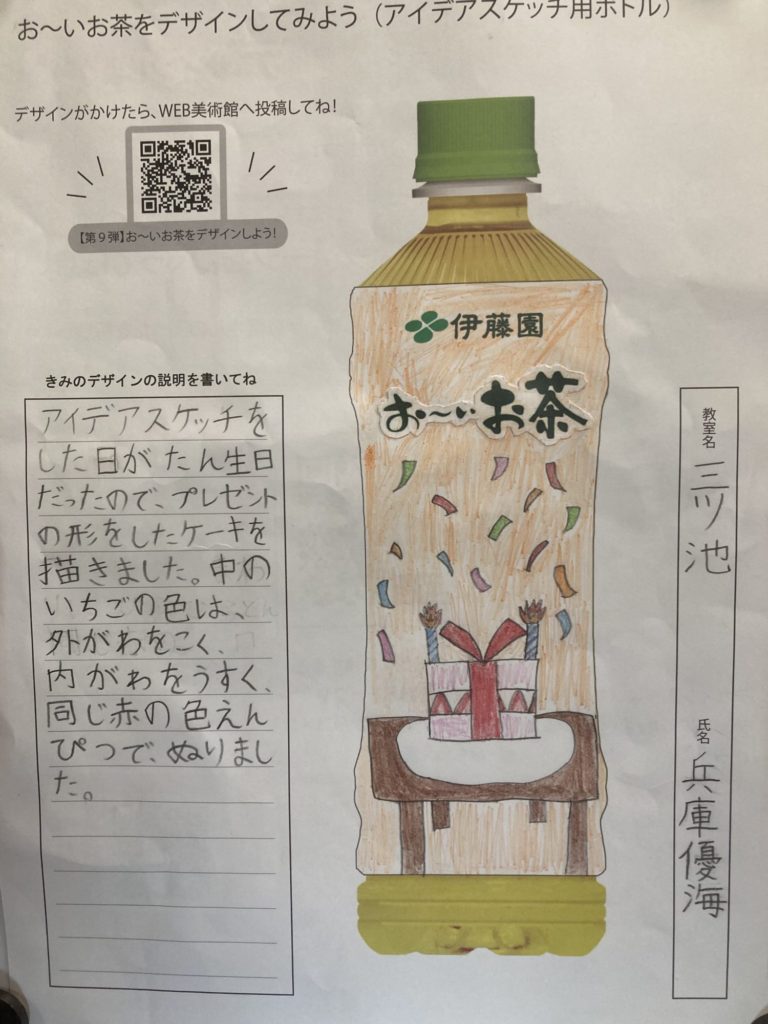 お～いお茶をデザインしてみよう（アイデアスケッチ用ボトル）
デザインがかけたら、WEB美術館へ投稿してね！
【第９弾】お～いお茶をデザインしよう！
伊藤園
お～いお茶
きみのデザインの説明を書いてね
アイデアスケッチを
した日がたん生日
だったので、プレゼント
の形をしたケーキを
描きました。中の
いちごの色は、
外がわをこく、
内がわをうすく、
同じ赤の色えん
ぴつで、ぬりまし
た。
教室名
三ツ池
氏名
兵庫優海